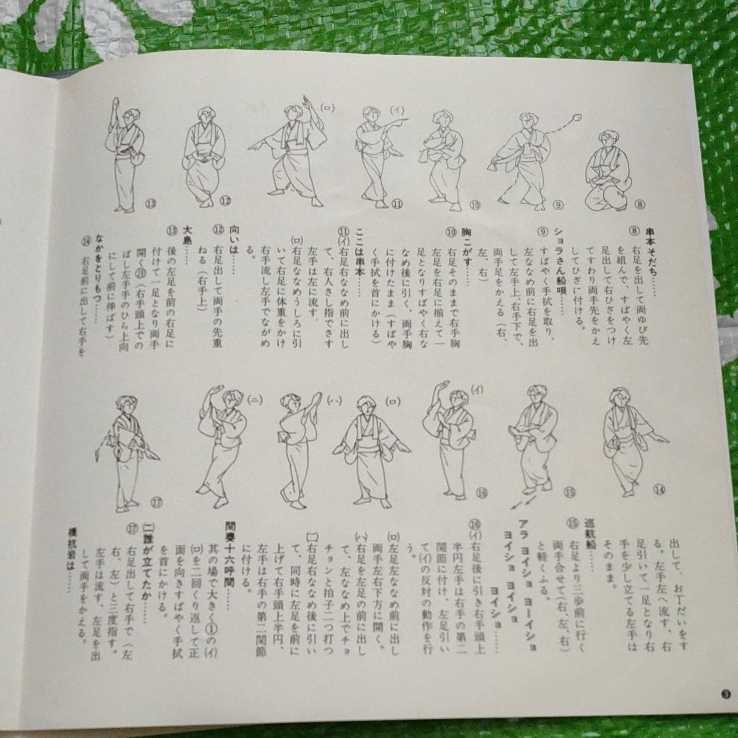 串本そだち……
⑧ 右足を出して両ゆび先
を組んで、すばやく左
足出して右ひざをつけ
てすわり両手先をかえ
してひざに付ける。
ショラさん船唄……
⑨ すばやく手拭を取り、
左ななめ前に右足を出
して左手上、右手下で、
両手足をかえる(右、
左、右)
胸こがす……
⑩ 右足そのままで右手胸
左足を右足に揃えて一
足となりすばやく右な
なめ後に引く、両手胸
に付けたまま(すばや
く手拭を首にかける)
ここは串本……
⑪(イ) 右足右ななめ前に出し
て、右人さし指でさす
左手は左に流す。
(ロ) 右足ななめうしろに引
いて右足に体重をかけ
右手流し左手でながめ
る。
向いは……
⑫ 右足出して両手の先重
ねる(右手上)
大島……
⑬ 後の左足を前の右足に
付けて一足となり両手
開く(右手頭上での
ばし左手手のひら上向
にして前に伸ばす)
なかをとりもつ……
⑭ 右足前に出して右手を
⑬
⑫
(ロ)
(イ)
⑪
⑩
⑨
⑧
出して、おじぎいをす
る。左手左へ流す、右
足引いて一足となり右
手を少し立てる左手は
そのまま。
巡航船……
⑮ 右足より三歩前に行く
両手合せて(右、左、右)
と軽くふる。
アラ ヨイショ ヨーイショ
ヨイショ ヨイショ
ヨイショ……
⑯(イ) 右足後に引き右手頭上
半円左手は右手の第二
関節に付け、左足引い
て(イ)の反対の動作を行
う。
(ロ) 左足左ななめ前に出し
両手左右下方に開く。
(ハ) 右足を左足の前に出し
て、左ななめ上でチョ
チョンと拍子二つ打つ
(ニ) 右足右ななめ後に引い
て、同時に左足を前に
上げて右手頭上半円、
左手は右手の第二関節
に付ける。
間奏十六呼間……
其の場で大きく①の(イ)
(ロ)を二回くり返して正
面を向きすばやく手拭
を首にかける。
(二)誰が立てたか……
⑰ 右足出して右手で(左
右、左)と三度指す。
左手は流す、左足を出
して両手をかえる。
橋杭岩は……
⑰
(ニ)
(ハ)
(ロ)
(イ)
⑯
⑮
⑭
3